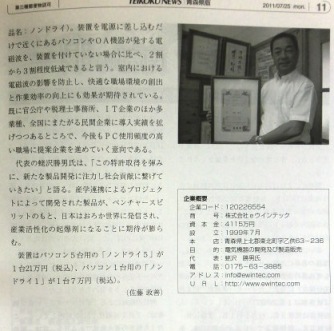 第三種郵便物認可
TEIKOKU NEWS 青森県版
2011/07/25 mon. 11
品名:ノンドライ)。装置を電源に差し込むだ
けで近くにあるパソコンやOA機器が発する電
磁波を、装置を付けていない場合に比べ、2割
から3割程度低減できると言う。室内における
電磁波の影響を防止し、快適な職場環境の創出
と作業効率の向上にも効果が期待されている。
既に官公庁や税理士事務所、IT企業のほか多
業種、全国にまたがる民間企業に導入実績を拡
げつつあるところで、今後もPC使用頻度の高
い職場に提案企業を進めていく意向である。
代表の蛯沢勝男氏は、「この特許取得を弾み
に、新たな製品開発に注力し社会貢献に繋げて
いきたい」と語る。産学連携によるプロジェク
トによって開発された製品が、ベンチャースピ
リットのもと、日本はおろか世界に発信され、
産業活性化の起爆剤になることに期待が膨ら
む。
装置はパソコン5台用の「ノンドライ5」が
1台21万円(税込)、パソコン1台用の「ノン
ドライ1」が1台7万円(税込)。
(佐藤 政善)
企業概要
企業コード:120226554
商 号:株式会社eウインテック
資 本 金:4115万円
設 立:1999年7月
本 店:青森県上北郡東北町字乙供63-236
目 的:電気機器の開発及び製造販売
代 表:蛯沢 勝男氏
電 話:0175-63-3885
アドレス:info@ewintec.com
U R L:http://www.ewintec.com